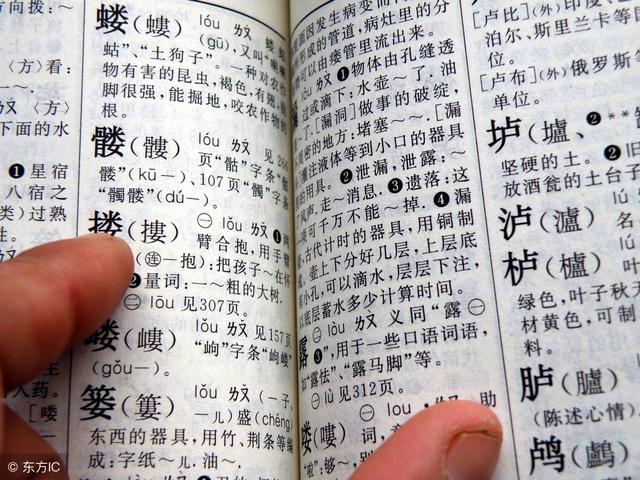 方向拨：～
〈方〉看：
ㄡ 〈方〉
下面的水
❶星宿
八宿之
类）过熟
性。
人药。
［喽
蝼（螻） lóu ㄌㄡ
(gū)，又叫“
蛄”、“土狗子”。一种对农作
物有害的昆虫，褐色，有翅，
脚很强，能掘地，咬农作物的
根。
髅（髏） lóu ㄌㄡ 见
页“骷”字条“骷
髅”(kū－)、107页“髑”字条
“髑髅”(dú－)。
搂（摟） ㊀ lǒu ㄌㄡ ❶两
臂合抱，用手臂
（㊣一抱）：把孩子～在怀
❷量词：一～粗的大树.
㊁ lōu 见307页。
嵝（嶁） lǒu ㄌㄡ 见157页
“岣”字条“岣嵝”
(gǒu－)。
篓（簍） lǒu ㄌㄡ （－子、
－儿）盛(chéng)
东西的器具，用竹、荆条等编
成：字纸～儿. 油～.
因发生病变而
形成的管道，病灶里的分
可以由瘘管里流出来。
ㄌㄡ ❶物体由孔缝透
过或滴下：水壶～了. 油
了. [漏洞]做事的破绽，
周密的地方：堵塞～～. [漏
注液体等到小口的器具
的用具。❷泄漏，泄露：～
风声. 走～消息. ❸遗落：这
项可千万不能～掉. ❹漏
古代计时的器具，用铜制
壶上下分好几层，上层底
有小孔，可以滴水，层层下注，
以底层蓄水多少计算时间。
露 ㊀ lòu ㄌㄡ 义同“露㊁
❸”，用于一些口语词语，
如“露怯”、“露马脚”等。
㊁ lù 见312页。
喽（嘍） ㊀ lou · ㄌㄡ 助
词，
“啦”：够～，别
［卢比］（外）印度、
泊尔、斯里兰卡等
位。
［卢布］（外）俄罗斯等
单位。
垆（壚、❷**
坚硬的土。❷旧
放酒瓮的土台子
泸（瀘） lú
名
栌（櫨） lú
绿色，叶子秋天
材黄色，可制
料。
胪（臚）
（陈述心情）
鸬（鸕）
© 东方IC